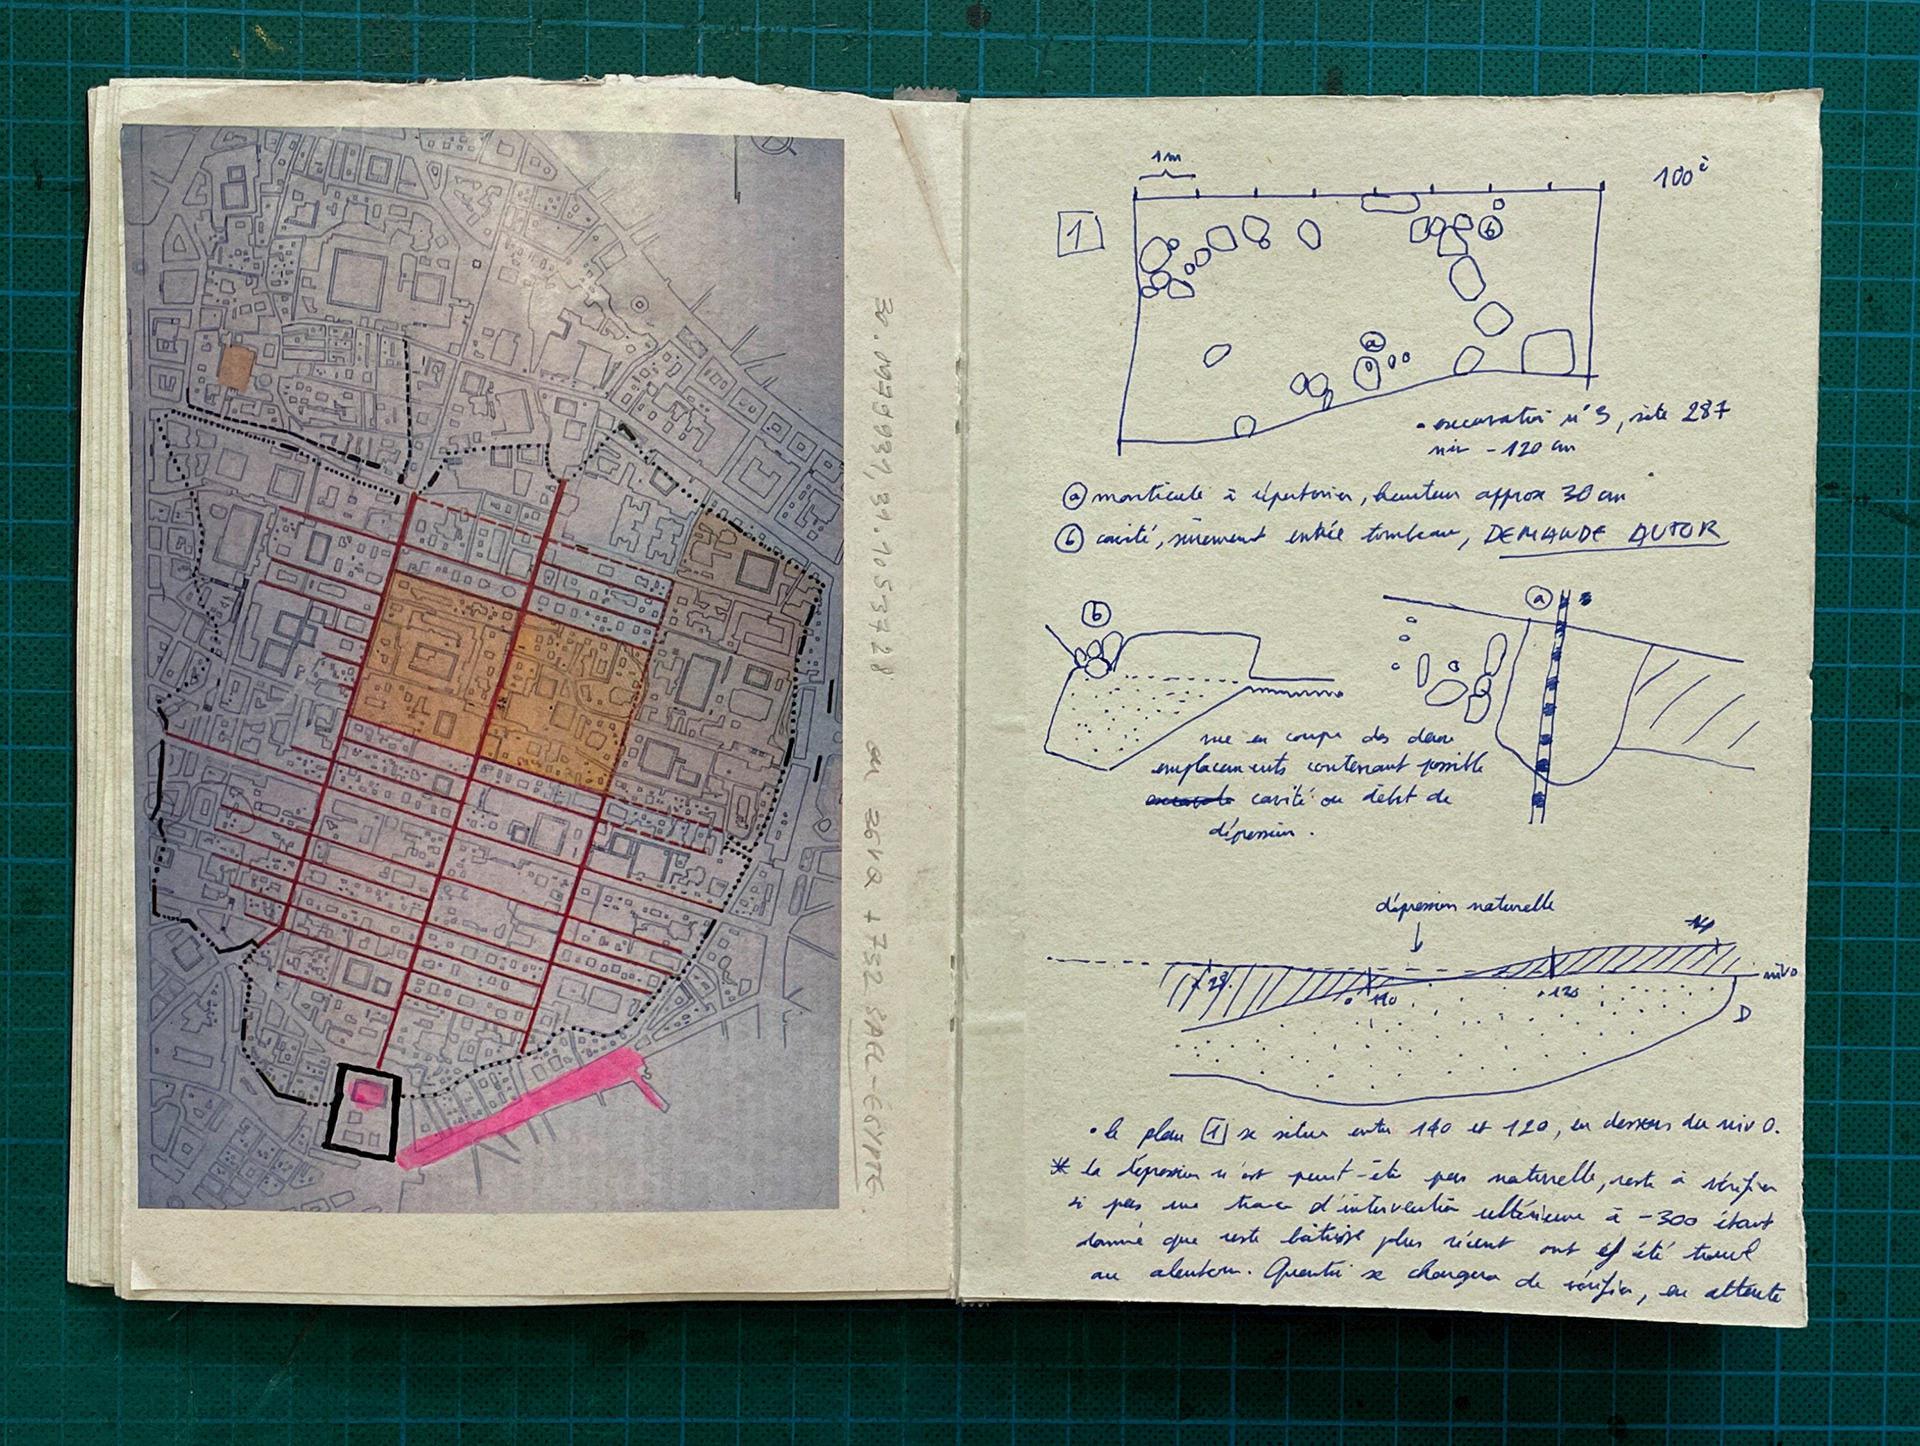 30.0479931, 31.1053728 ou 26VQ + 7S2 SAFL-ÉGYPTE
1m
100
1
b
a
• excavation n°3, site 287
niv -120 cm
a monticule à répertorier, hauteur approx 30 cm
b cavité, sûrement entrée tombeau, DEMANDE AUTOR
b
a
vue en coupe des deux
emplacements contenant possible
cavité ou début de
dépression.
dépression naturelle
niv 0
140
• 120
D
• le plan 1 se situe entre 140 et 120, en dessous du niv 0.
* la dépression n'est peut-être pas naturelle, reste à vérifier
si pas une trace d'intervention ultérieure à -300 étant
donné que reste bâtisse plus récent ont été trouvé
au alentour. Quentin se chargera de vérifier, en attente